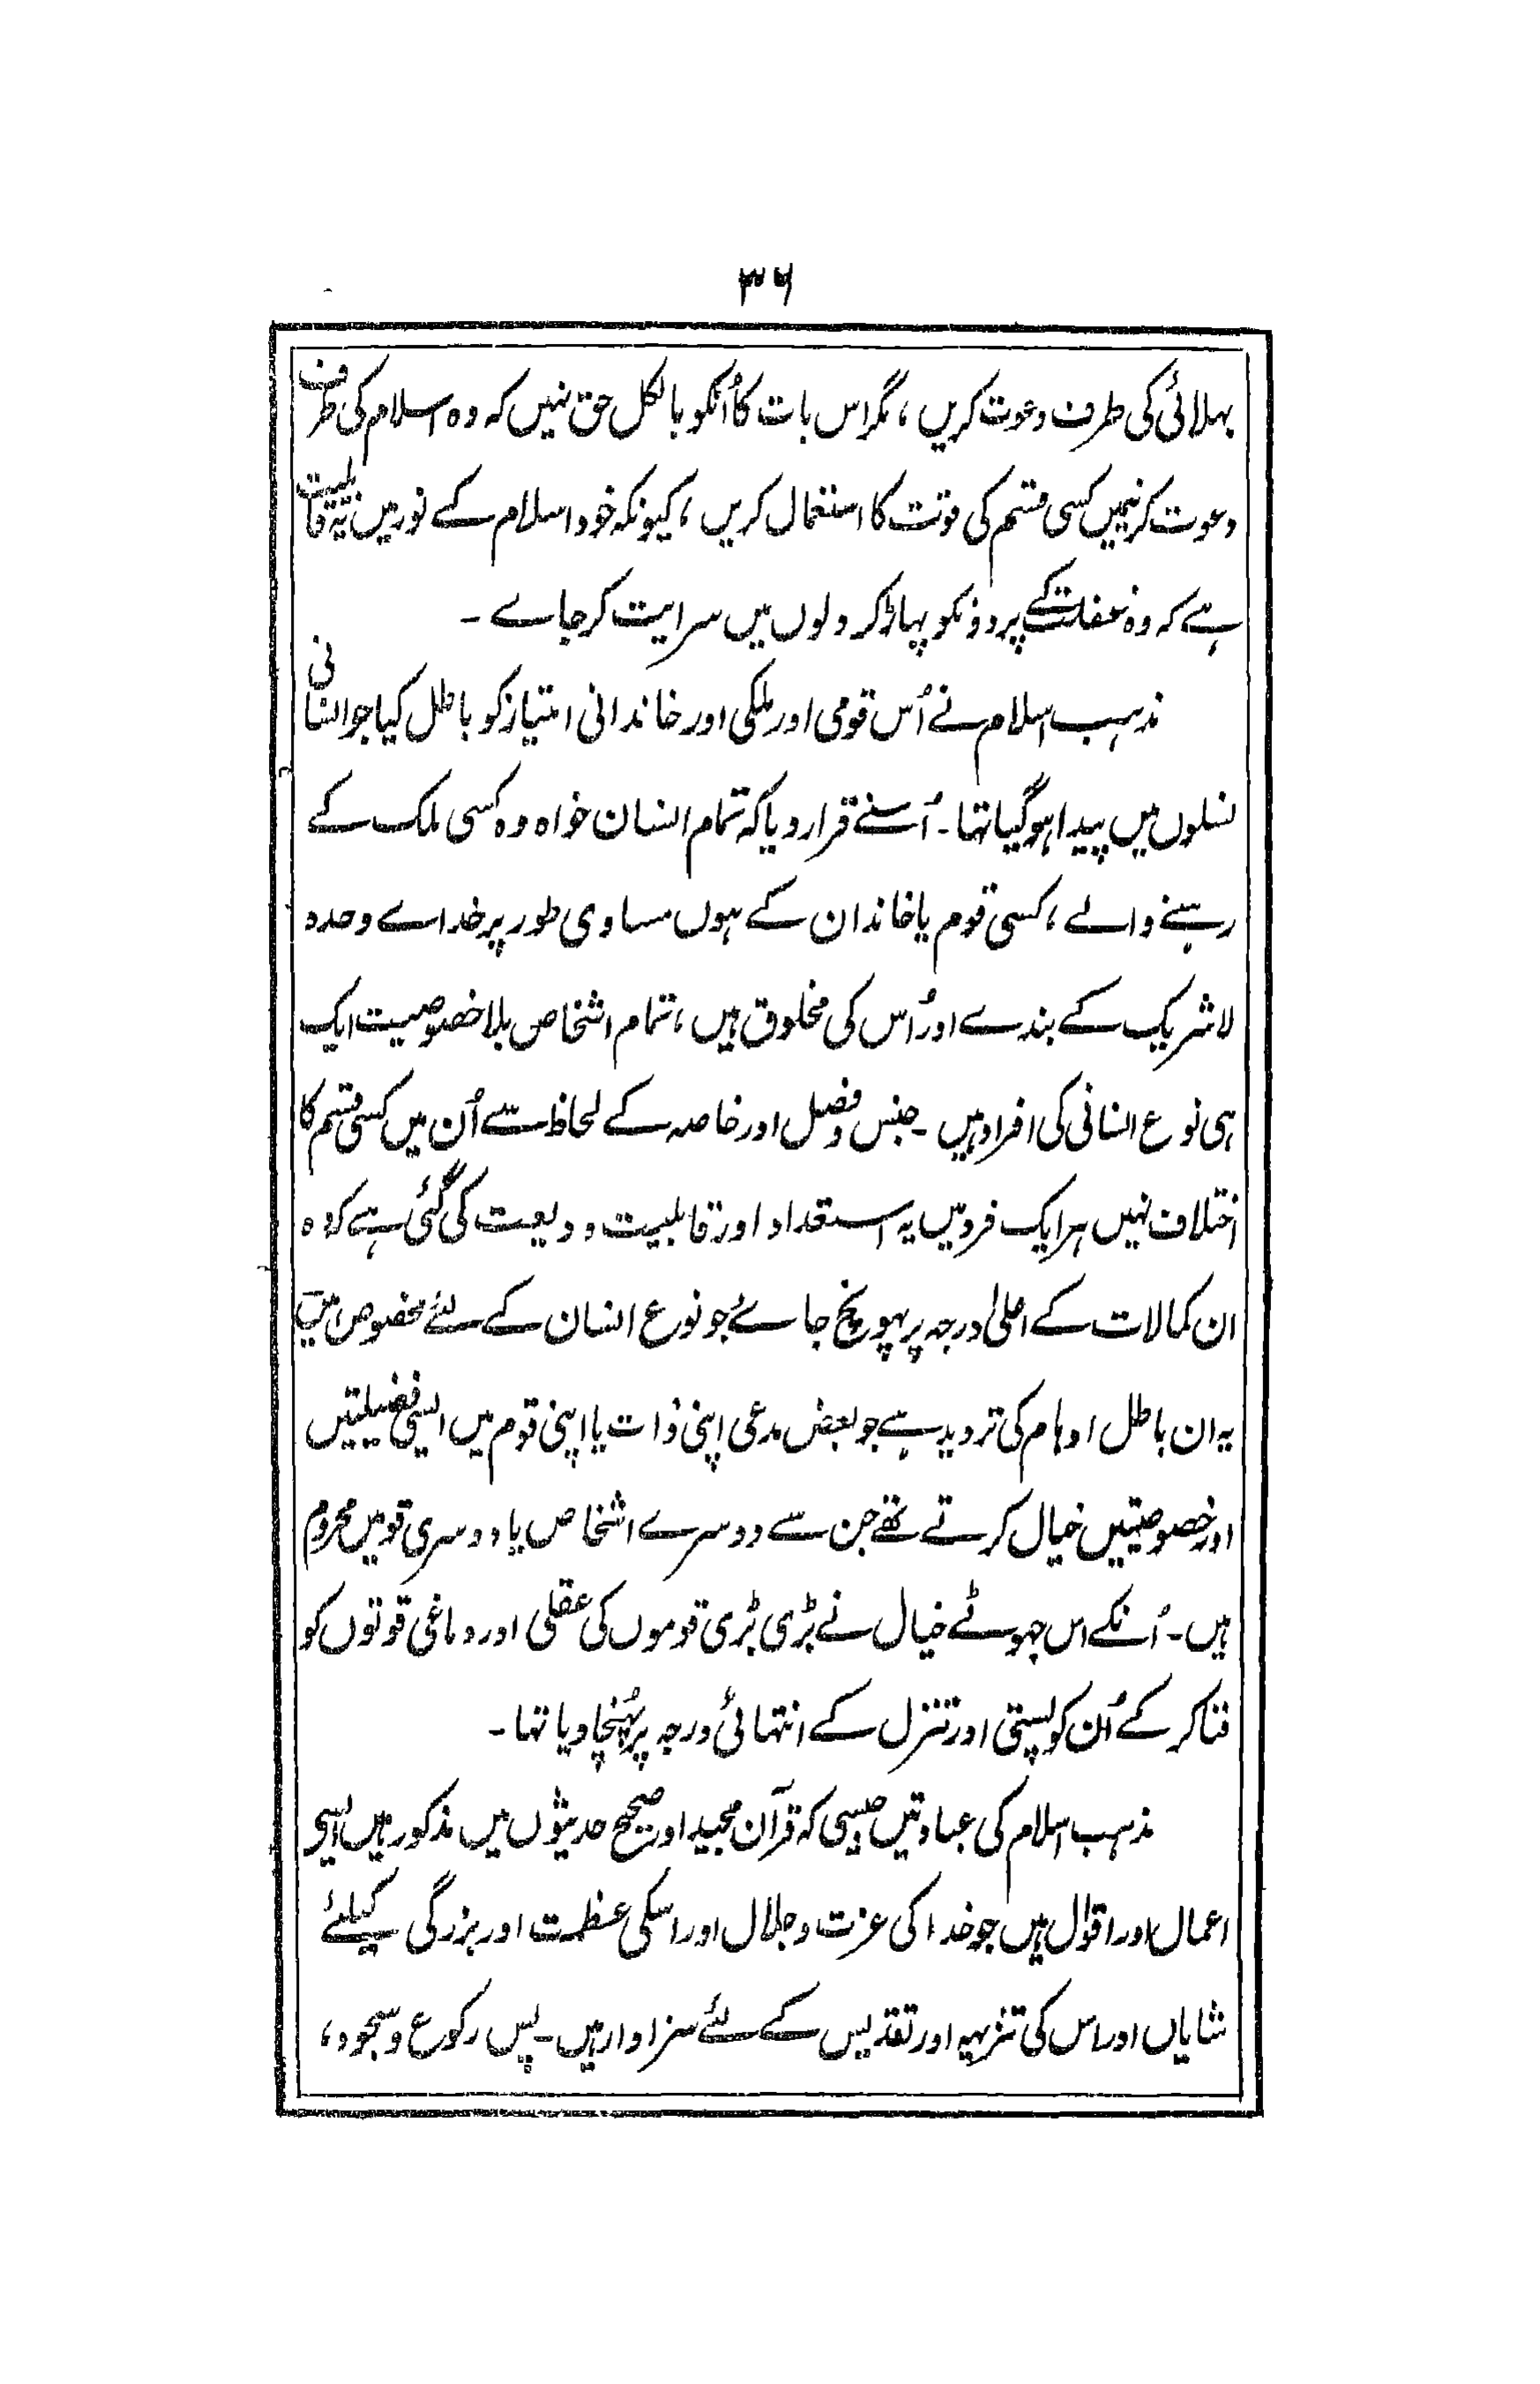 ۳۶
بہلائی کی طرف دعوت کریں ، مگر اس بات کا اُنکو بالکل حق نہیں کہ وہ اسلام کی طرف
دعوت کرنیمیں کسی قسم کی قوت کا استعمال کریں ، کیونکہ خود اسلام کے نور میں یہ قابلیت
ہے کہ وہ غفلت کے پردونکو پہاڑ کر دلوں میں سرایت کر جاے ۔
مذہب اسلام نے اُس قومی اور ملکی اور خاندانی امتیاز کو باطل کیا جو انسانی
نسلوں میں پیدا ہو گیا تہا ۔ اُسنے قرار دیا کہ تمام انسان خواہ وہ کسی ملک کے
رہنے والے ، کسی قوم یا خاندان کے ہوں مساوی طور پر خداے وحدہ
لا شریک کے بندے اور اُس کی مخلوق ہیں ، تمام اشخاص بلا خصوصیت ایک
ہی نوع انسانی کی افراد ہیں ۔ جنس و فصل اور خاصہ کے لحاظ سے اُن میں کسی قسم کا
اختلاف نہیں ہر ایک فرد میں یہ استعداد اور قابلیت ودیعت کی گئی ہے کہ وہ
ان کمالات کے اعلیٰ درجہ پر پہونچ جاے جو نوع انسان کے لئے مخصوص ہیں
یہ ان باطل اوہام کی تردید ہے جو بعض مدعی اپنی ذات یا اپنی قوم میں ایسی فضیلتیں
اور خصوصیتیں خیال کرتے تھے جن سے دوسرے اشخاص یا دوسری قومیں محروم
ہیں ۔ اُنکے اس جہوٹے خیال نے بڑی بڑی قوموں کی عقلی اور دماغی قوتوں کو
فنا کر کے اُن کو پستی اور تنزل کے انتہائی درجہ پر پُہنچا دیا تہا ۔
مذہب اسلام کی عبادتیں جیسی کہ قرآن مجید اور صحیح حدیثوں میں مذکور ہیں ایسی
اعمال اور اقوال ہیں جو خدا کی عزت و جلال اور اسکی عظمت اور بزرگی کیلئے
شایاں اور اس کی تنزیہہ اور تقدیس کے لئے سزاوار ہیں ۔ پس رکوع و سجود ،